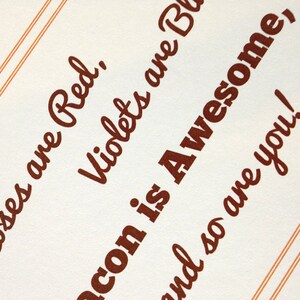 oses are Red,
Violets are Bl
acon is Awesome,
and so are you!